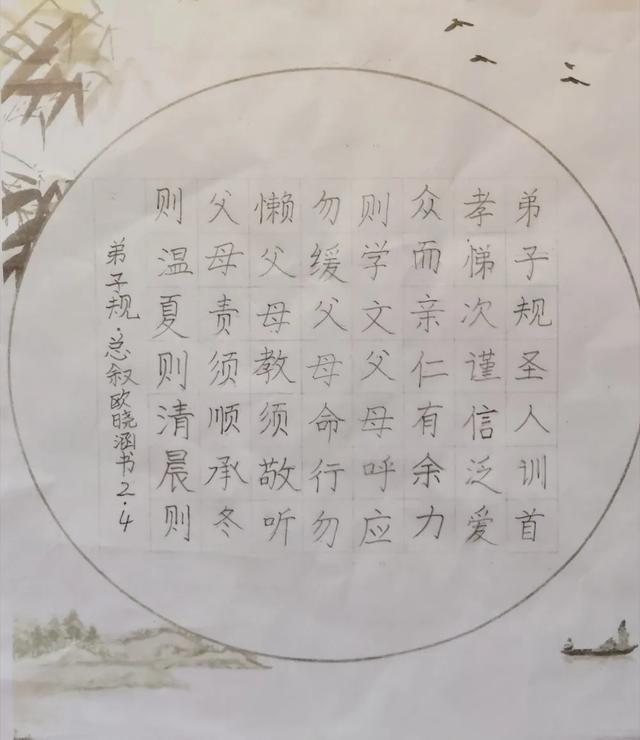 弟子规圣人训首
孝悌次谨信泛爱
众而亲仁有余力
则学文父母呼应
勿缓父母命行勿
懒父母教须敬听
父母责须顺承冬
则温夏则清晨则
弟子规·总叙欧晓涵书2.4